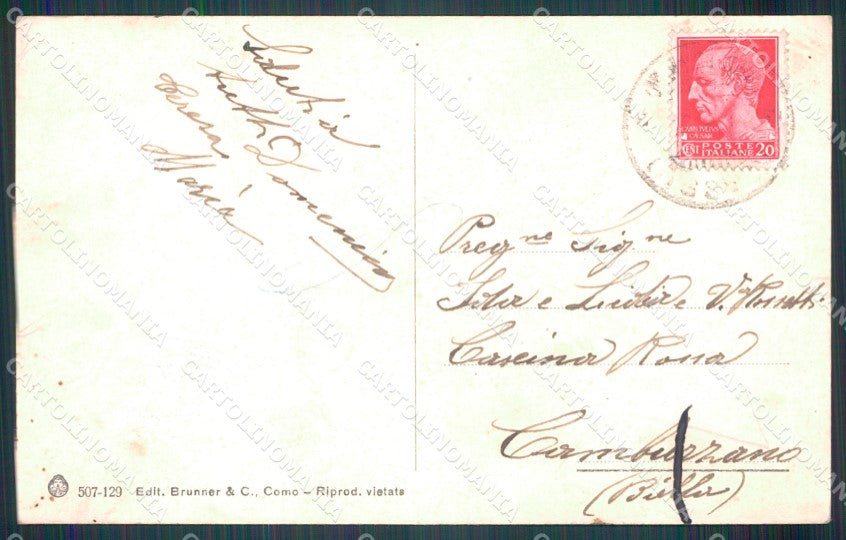 Saluti a
tutti Domenico
Teresa
Maria
CAIVS IVLIVS
CAESAR
POSTE
ITALIANE 20
Preg.ne Sig.ne
e Lidia e V. Rossetti
Cascina Rossa
Camburzano
(Biella)
507-129 Edit. Brunner & C., Como – Riprod. vietata
CARTOLINOMANIA